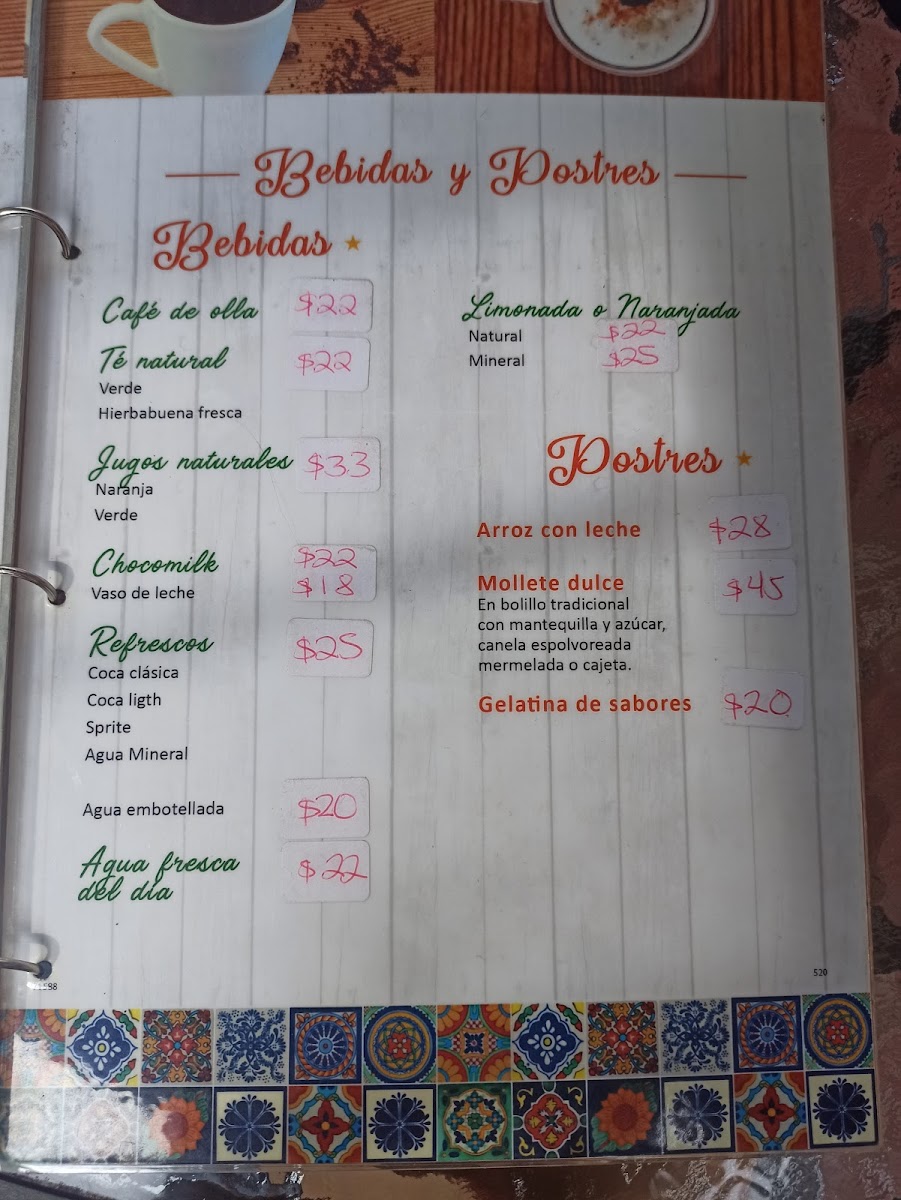 Bebidas y Postres
Bebidas
Café de olla $22
Té natural $22
Verde
Hierbabuena fresca
Jugos naturales $33
Naranja
Verde
Chocomilk $22
Vaso de leche $18
Refrescos $25
Coca clásica
Coca ligth
Sprite
Agua Mineral
Agua embotellada $20
Agua fresca $22
del día
Limonada o Naranjada
Natural $22
Mineral $25
Postres
Arroz con leche $28
Mollete dulce $45
En bolillo tradicional
con mantequilla y azúcar,
canela espolvoreada
mermelada o cajeta.
Gelatina de sabores $20
520